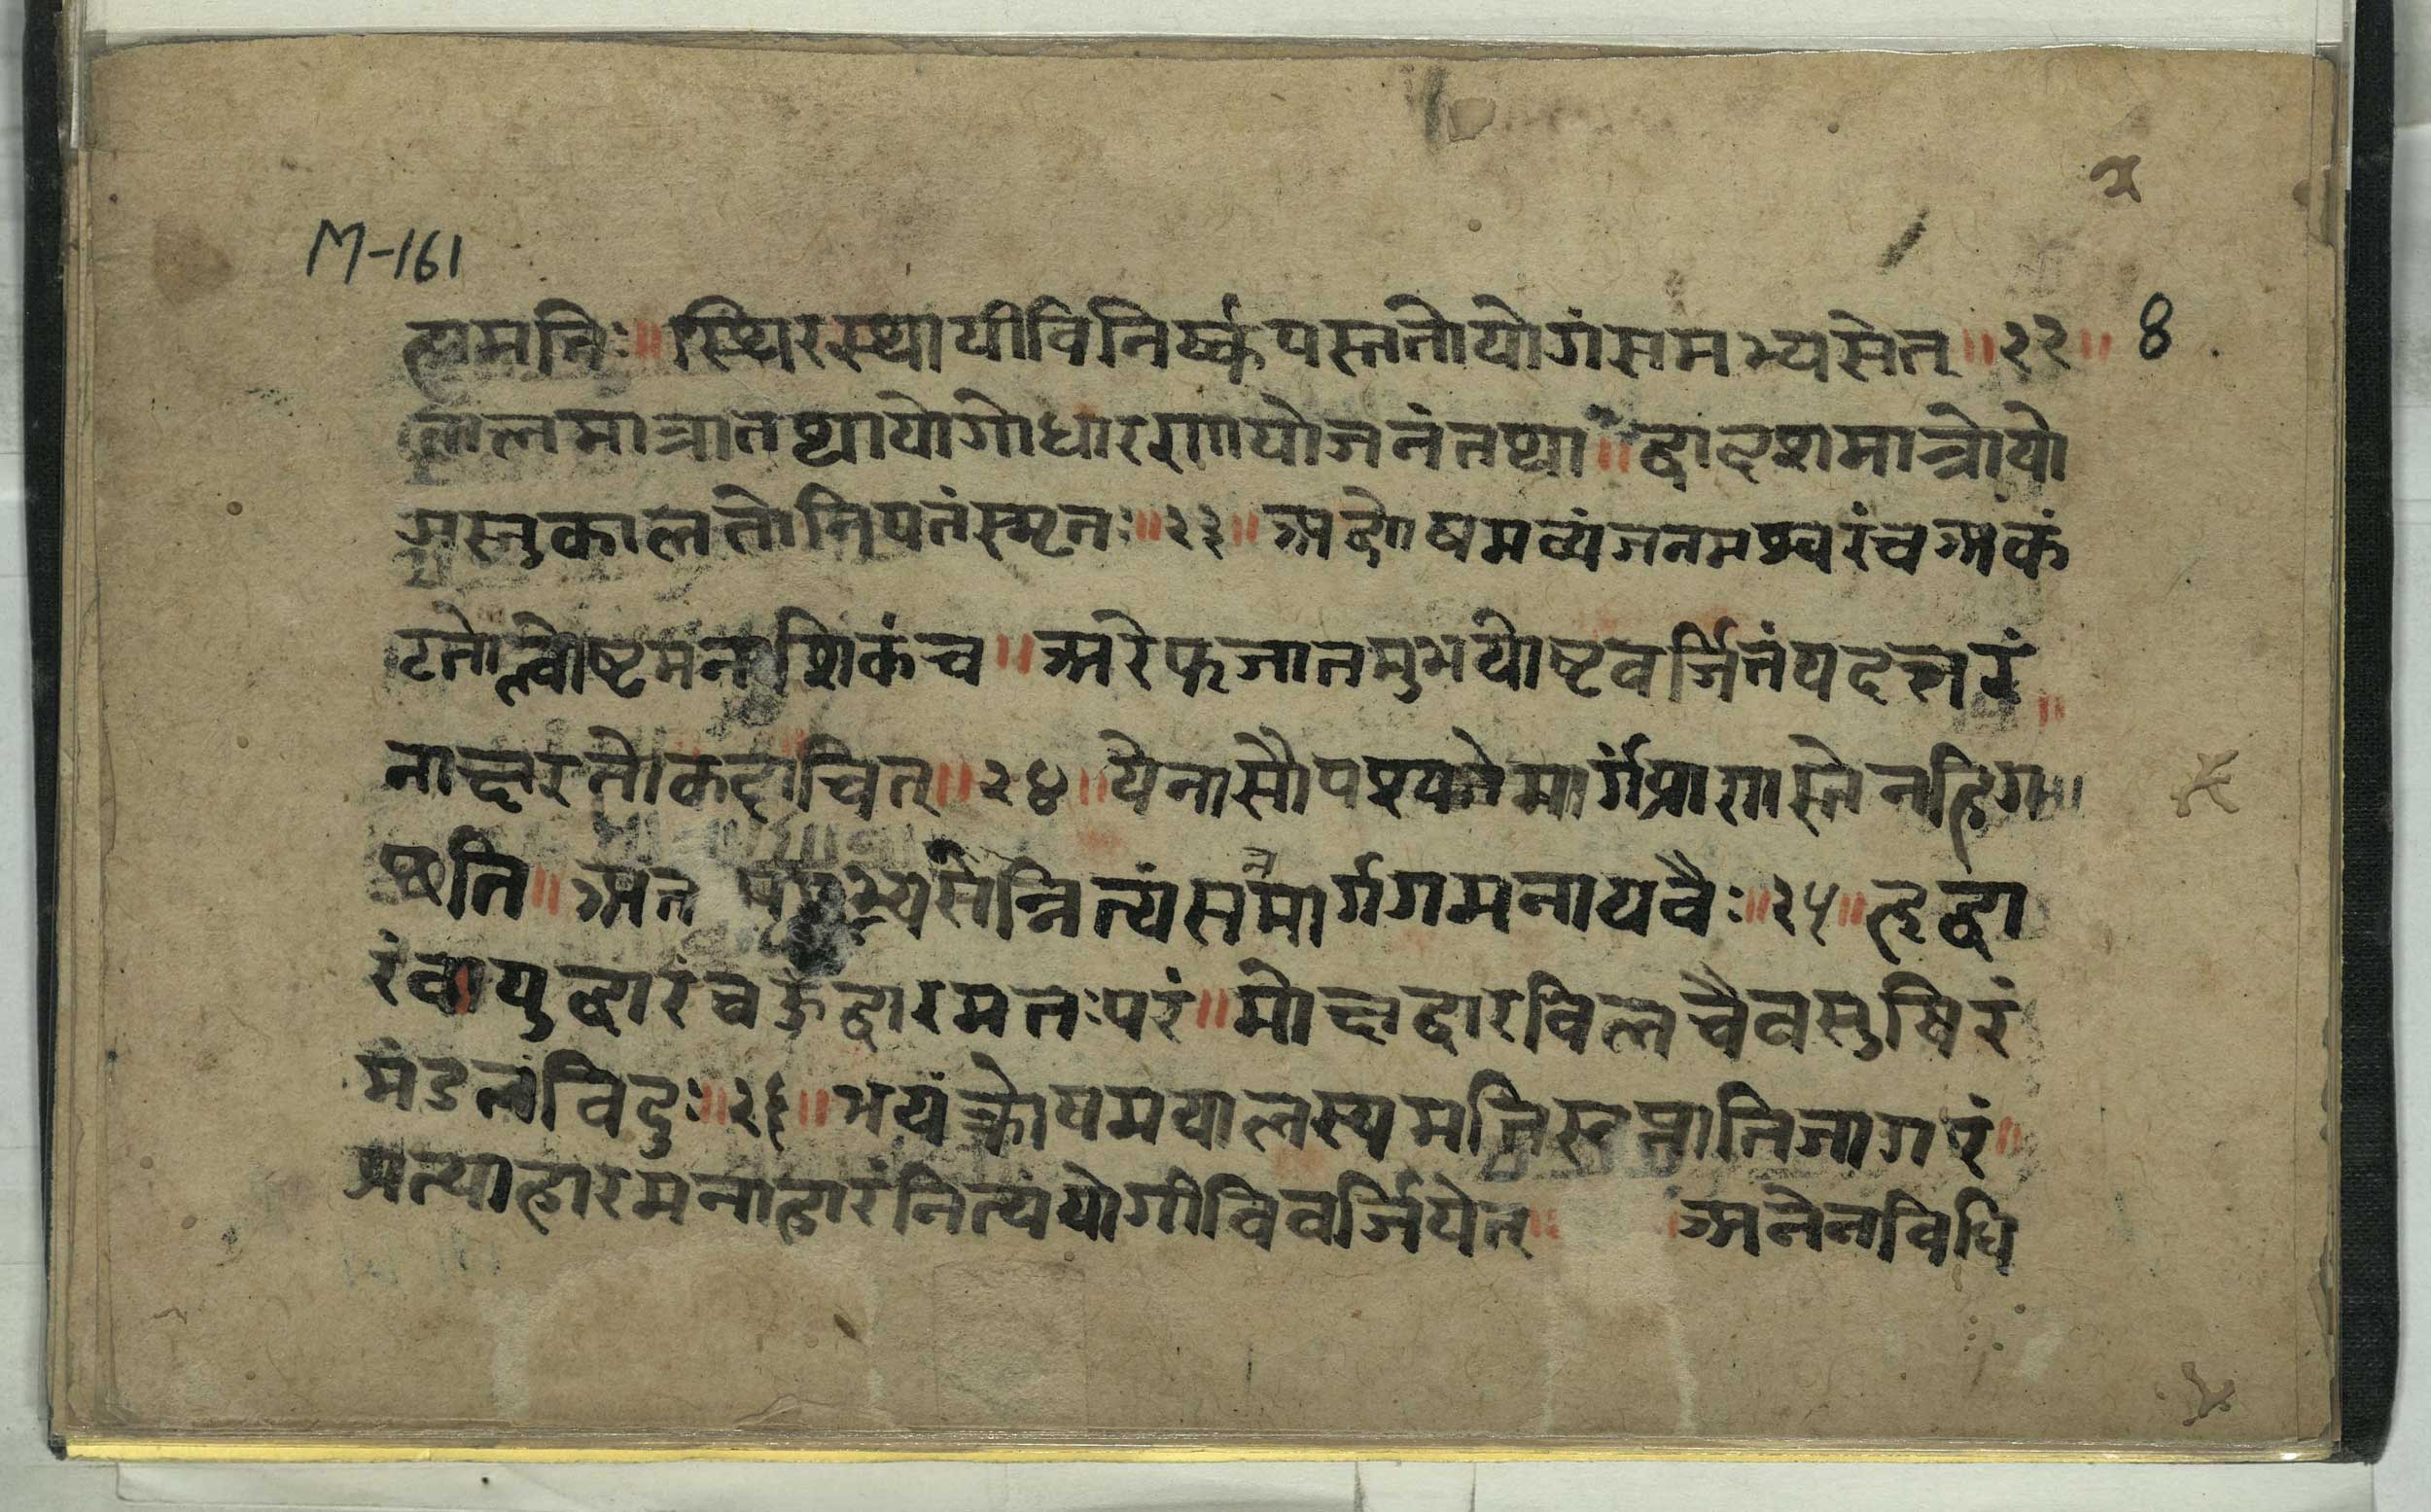 M-161
त्पामनिः ॥ स्थिरस्थायीविनिर्ष्कंपस्ततोयोगंसमभ्यसेत् ॥ २२ ॥ 8
तालमात्रातथायोगोधारणायोजनंतथा ॥ द्वादशमात्रोयो
गस्तुकालतोनियतंस्मृतः ॥ २३ ॥ अघोषमव्यंजनमश्वरंचअकं
टतोल्वोष्टमनाशिकंच ॥ अरेफजातमुभयोष्टवर्जितंयदक्षरं ॥
नाक्षरतोकदाचित् ॥ २४ ॥ येनासौपश्यतेमार्गंप्राणस्तेनहिग
छति ॥ अत समभ्यसेन्नित्यंसन्मार्गगमनायवैः ॥ २५ ॥ हृद्वा
रंवायुद्वारंच द्वारमतःपरं ॥ मोक्षद्वारविलचैवसुषिरं
मंडलंविदुः ॥ २६ ॥ भयंक्रोधमथालस्यमतिस्वप्नातिजागरं ॥
प्रत्याहारमनाहारंनित्यंयोगीविवर्जियेत् ॥ अनेनविधि